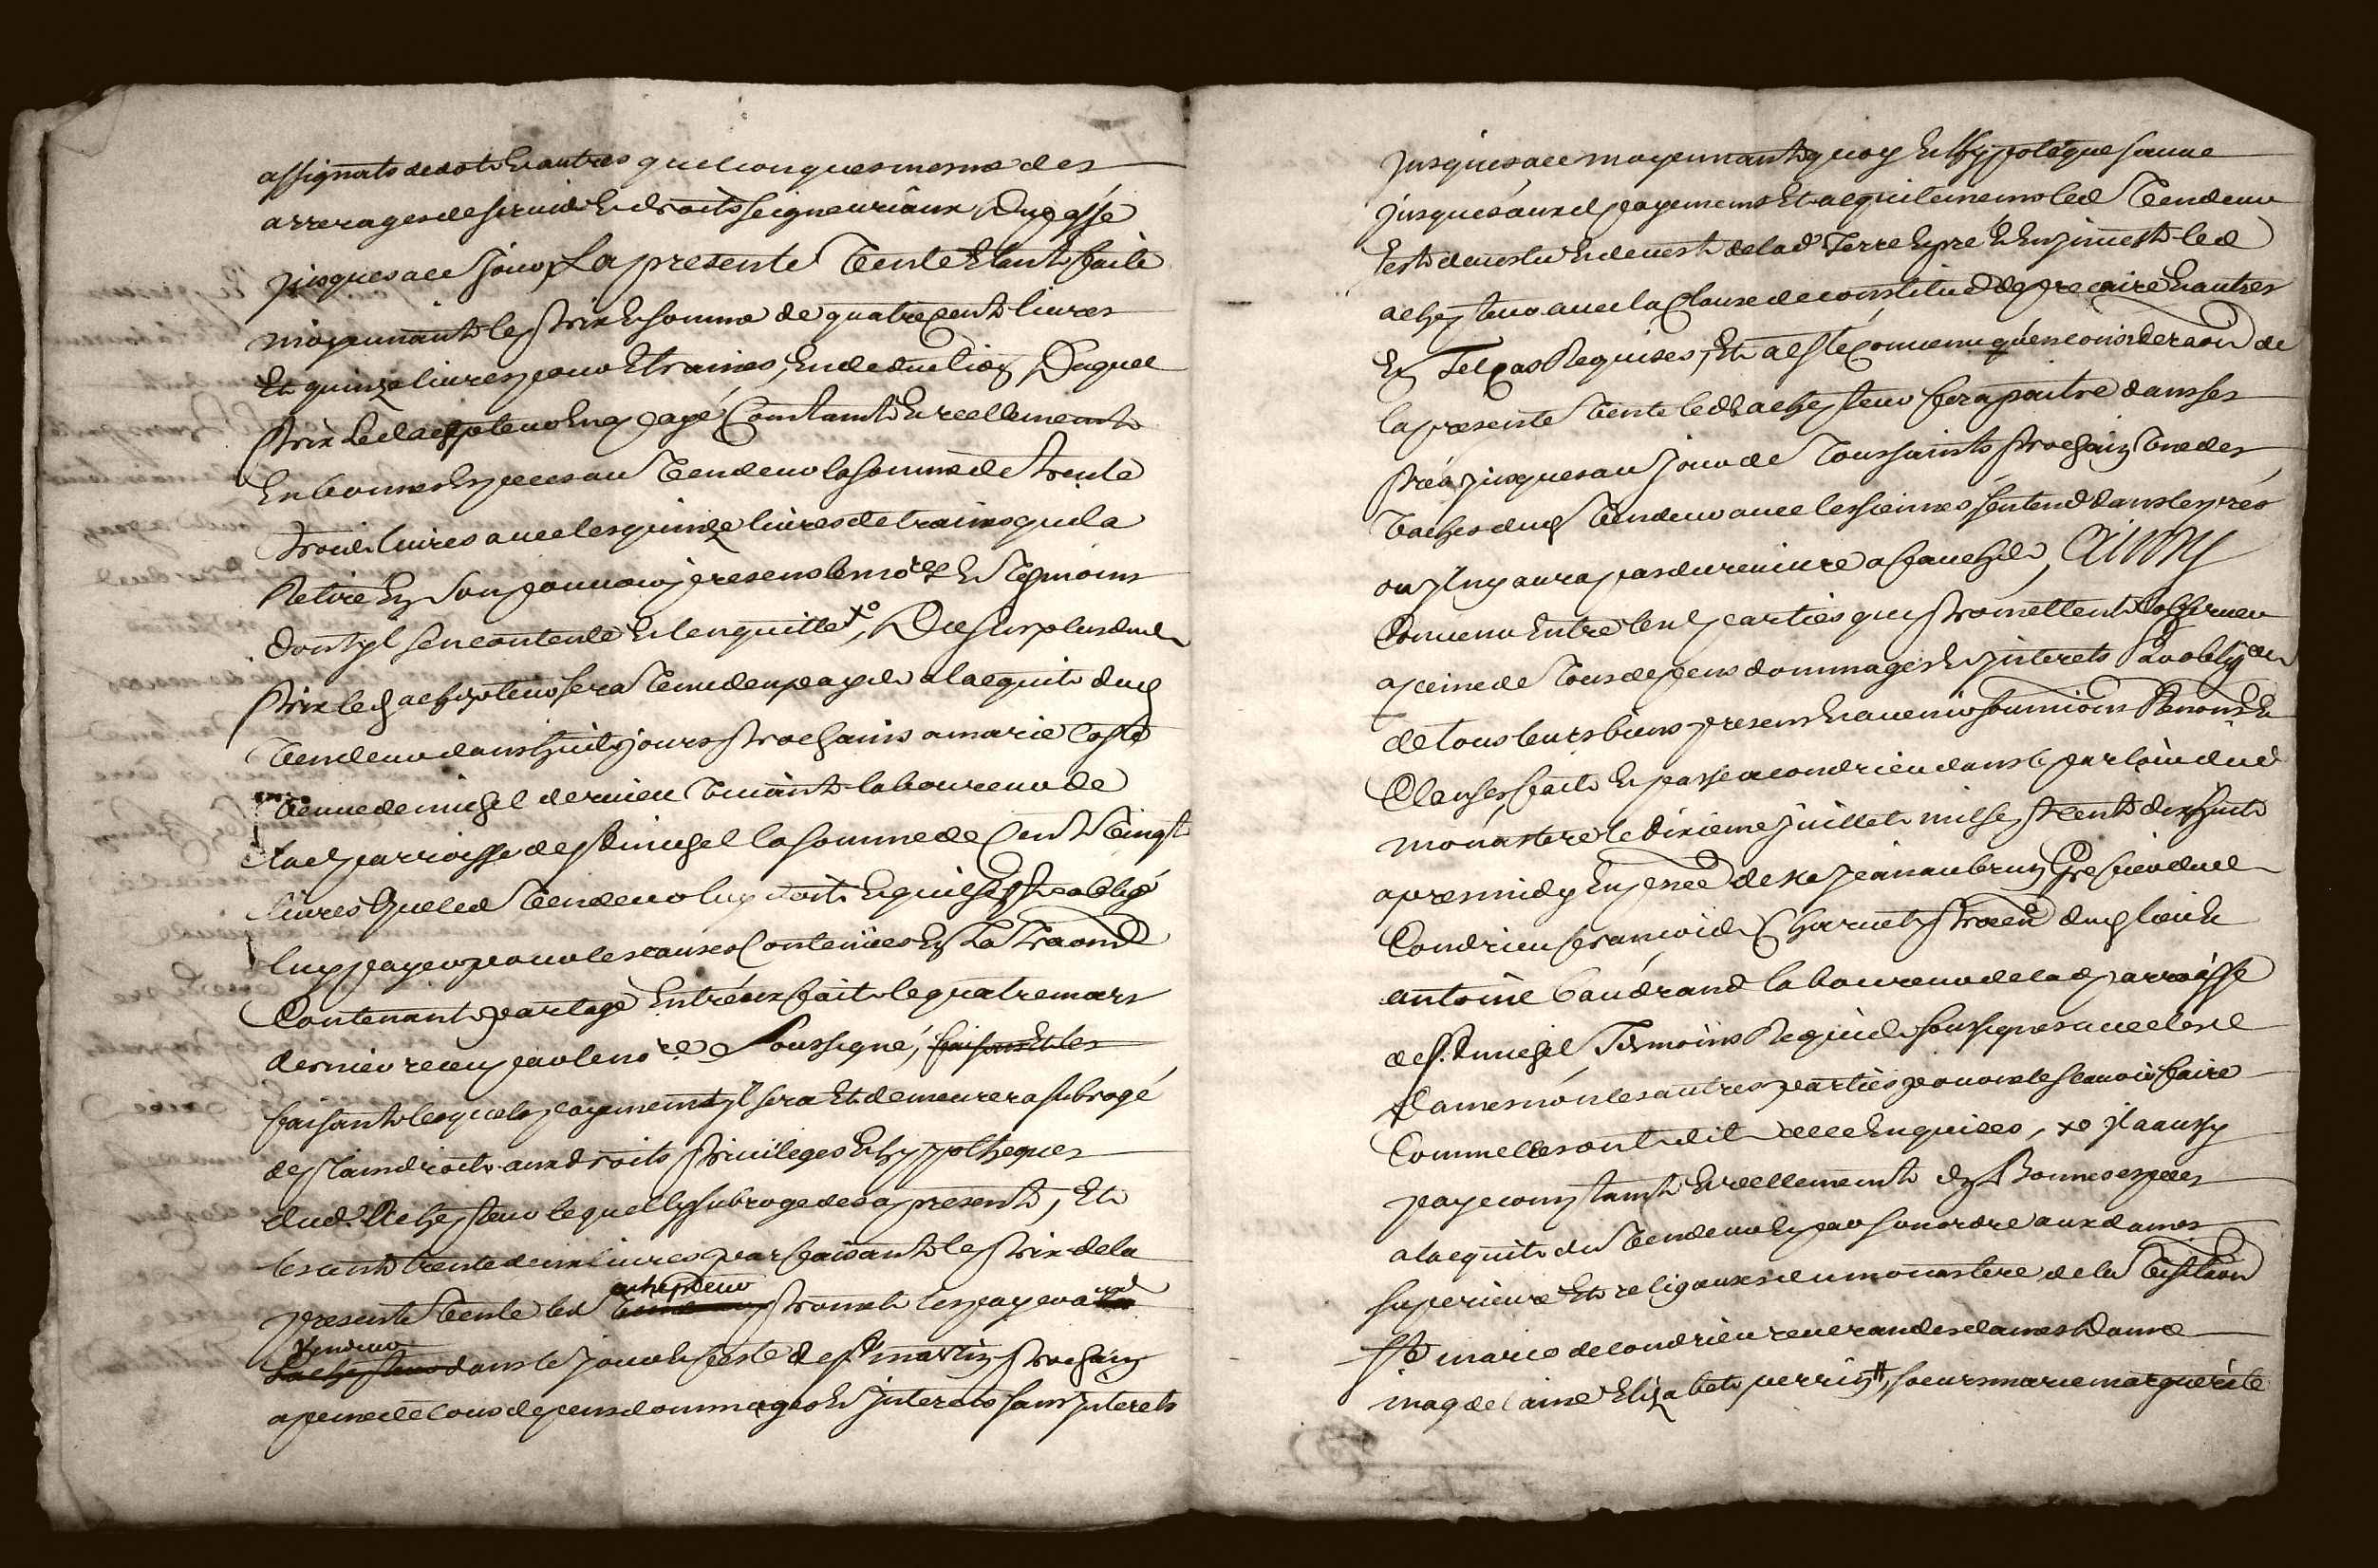 assignats de dote et autres quelconques mesme des
arrerages de servis et droits seigneuriaux du passé
jusques a ce jour, La presente vente étant faite
moyennant le prix et somme de quatre cent livres
Et quinze livres pour Etraines, En deduction Duquel
prix led achepteur En a payé Comptant et reellement
En bonnes Especes au vendeur la somme de trente
trois livres avec les quinze livres detraines quil a
Retiré En son pouvoir presens le no.re et tesmoins
dont yl sen contente et len quitte xo, Du surplus dud
prix led achepteur sera tenu den payer a lacquit dud
vendeur dans huit jours prochains a marie Coste
veuve de michel dernier vivant laboureur de
lad parroisse de st michel la somme de Cent vingt
livres que led vendeur luy doit Et quil sest obligé
luy payer pour les causes Contenües En La traon
Contenant partage Entréux fait le quatre mars
dernier receu par le no.re Soussigné, faisant les
faisant lesquels payements yl sera Et demeurera subrogé
de plain droit aux droits privileges Et hyppotheques
dud. Achepteur lequel ly subroge des a present, Et
les cent trente deux livres parfaisant le prix de la
presente vente led achepteur promet les payer aud
vendeur dans le jour et feste de st martin prochain
a peine de tous depens dommages Et Interets sans jnterets
jusques a ce moyennant quoy et lhypoteque sauve
jusques auxd payements Et acquitements led vendeur
sest devestu et devest de lad. Terre et pre et En jnvest led
achepteur avec la Clause de constitut de precaire et autres
En Tel cas Requises, Et a esté Convenu quén consideraon de
la presente vente led achepteur fera paitre dans ses
prés jusques au jour de toussaints prochain une des
vaches dud vendeur avec les siennes sentend dans les prés
ou yl ny aura pas de revivre a faucher, Ainsy
Convenu Entre les parties qui promettent lobserver
a peine de tous depens dommages Et jnterets L obligaon
de tous leurs biens presens et avenir soumiaons Renons et
Clauses, fait et passé a condrieu dans le parloir dud
monastere le dixieme juillet mil sept cent dix huit
apres midy En pnce de Me jean aubrun Greffier dud
Condrieu francois Charvet dud lieu et
antoine baudrand laboureur de lad parroisse
de st michel, Tesmoins Requis soussignes avec lesd
Dames non les autres parties pour ne le scavoir faire
Comme elles ont dit de ce Enquises, xo jl a aussy
payé comptant et reellement En Bonnes especes
a lacquit du vendeur et par son ordre aux dames
superieure Et religieuses du monastere de la visitaon
ste marie de condrieu reverandes dames Dame
magdelaine Elizabet perrin #, soeurs marie marguerite